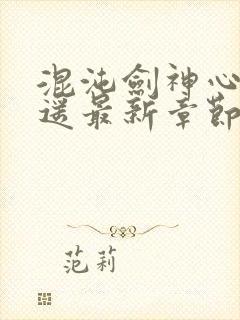 混沌劍神心
逆最新章節
范莉